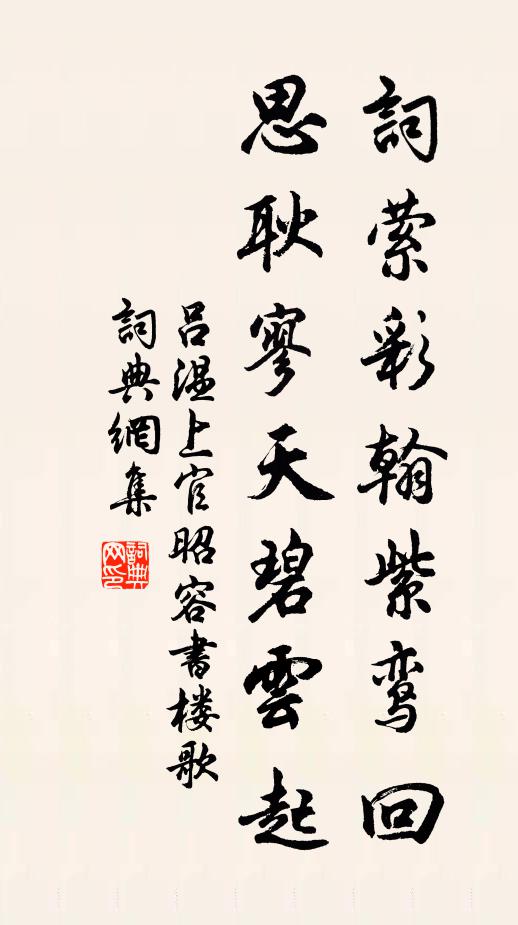 詞萦彩翰紫鸾回
思耿寥天碧雲起
吕温上官昭容書楼歌
詞典網集
詞典网印